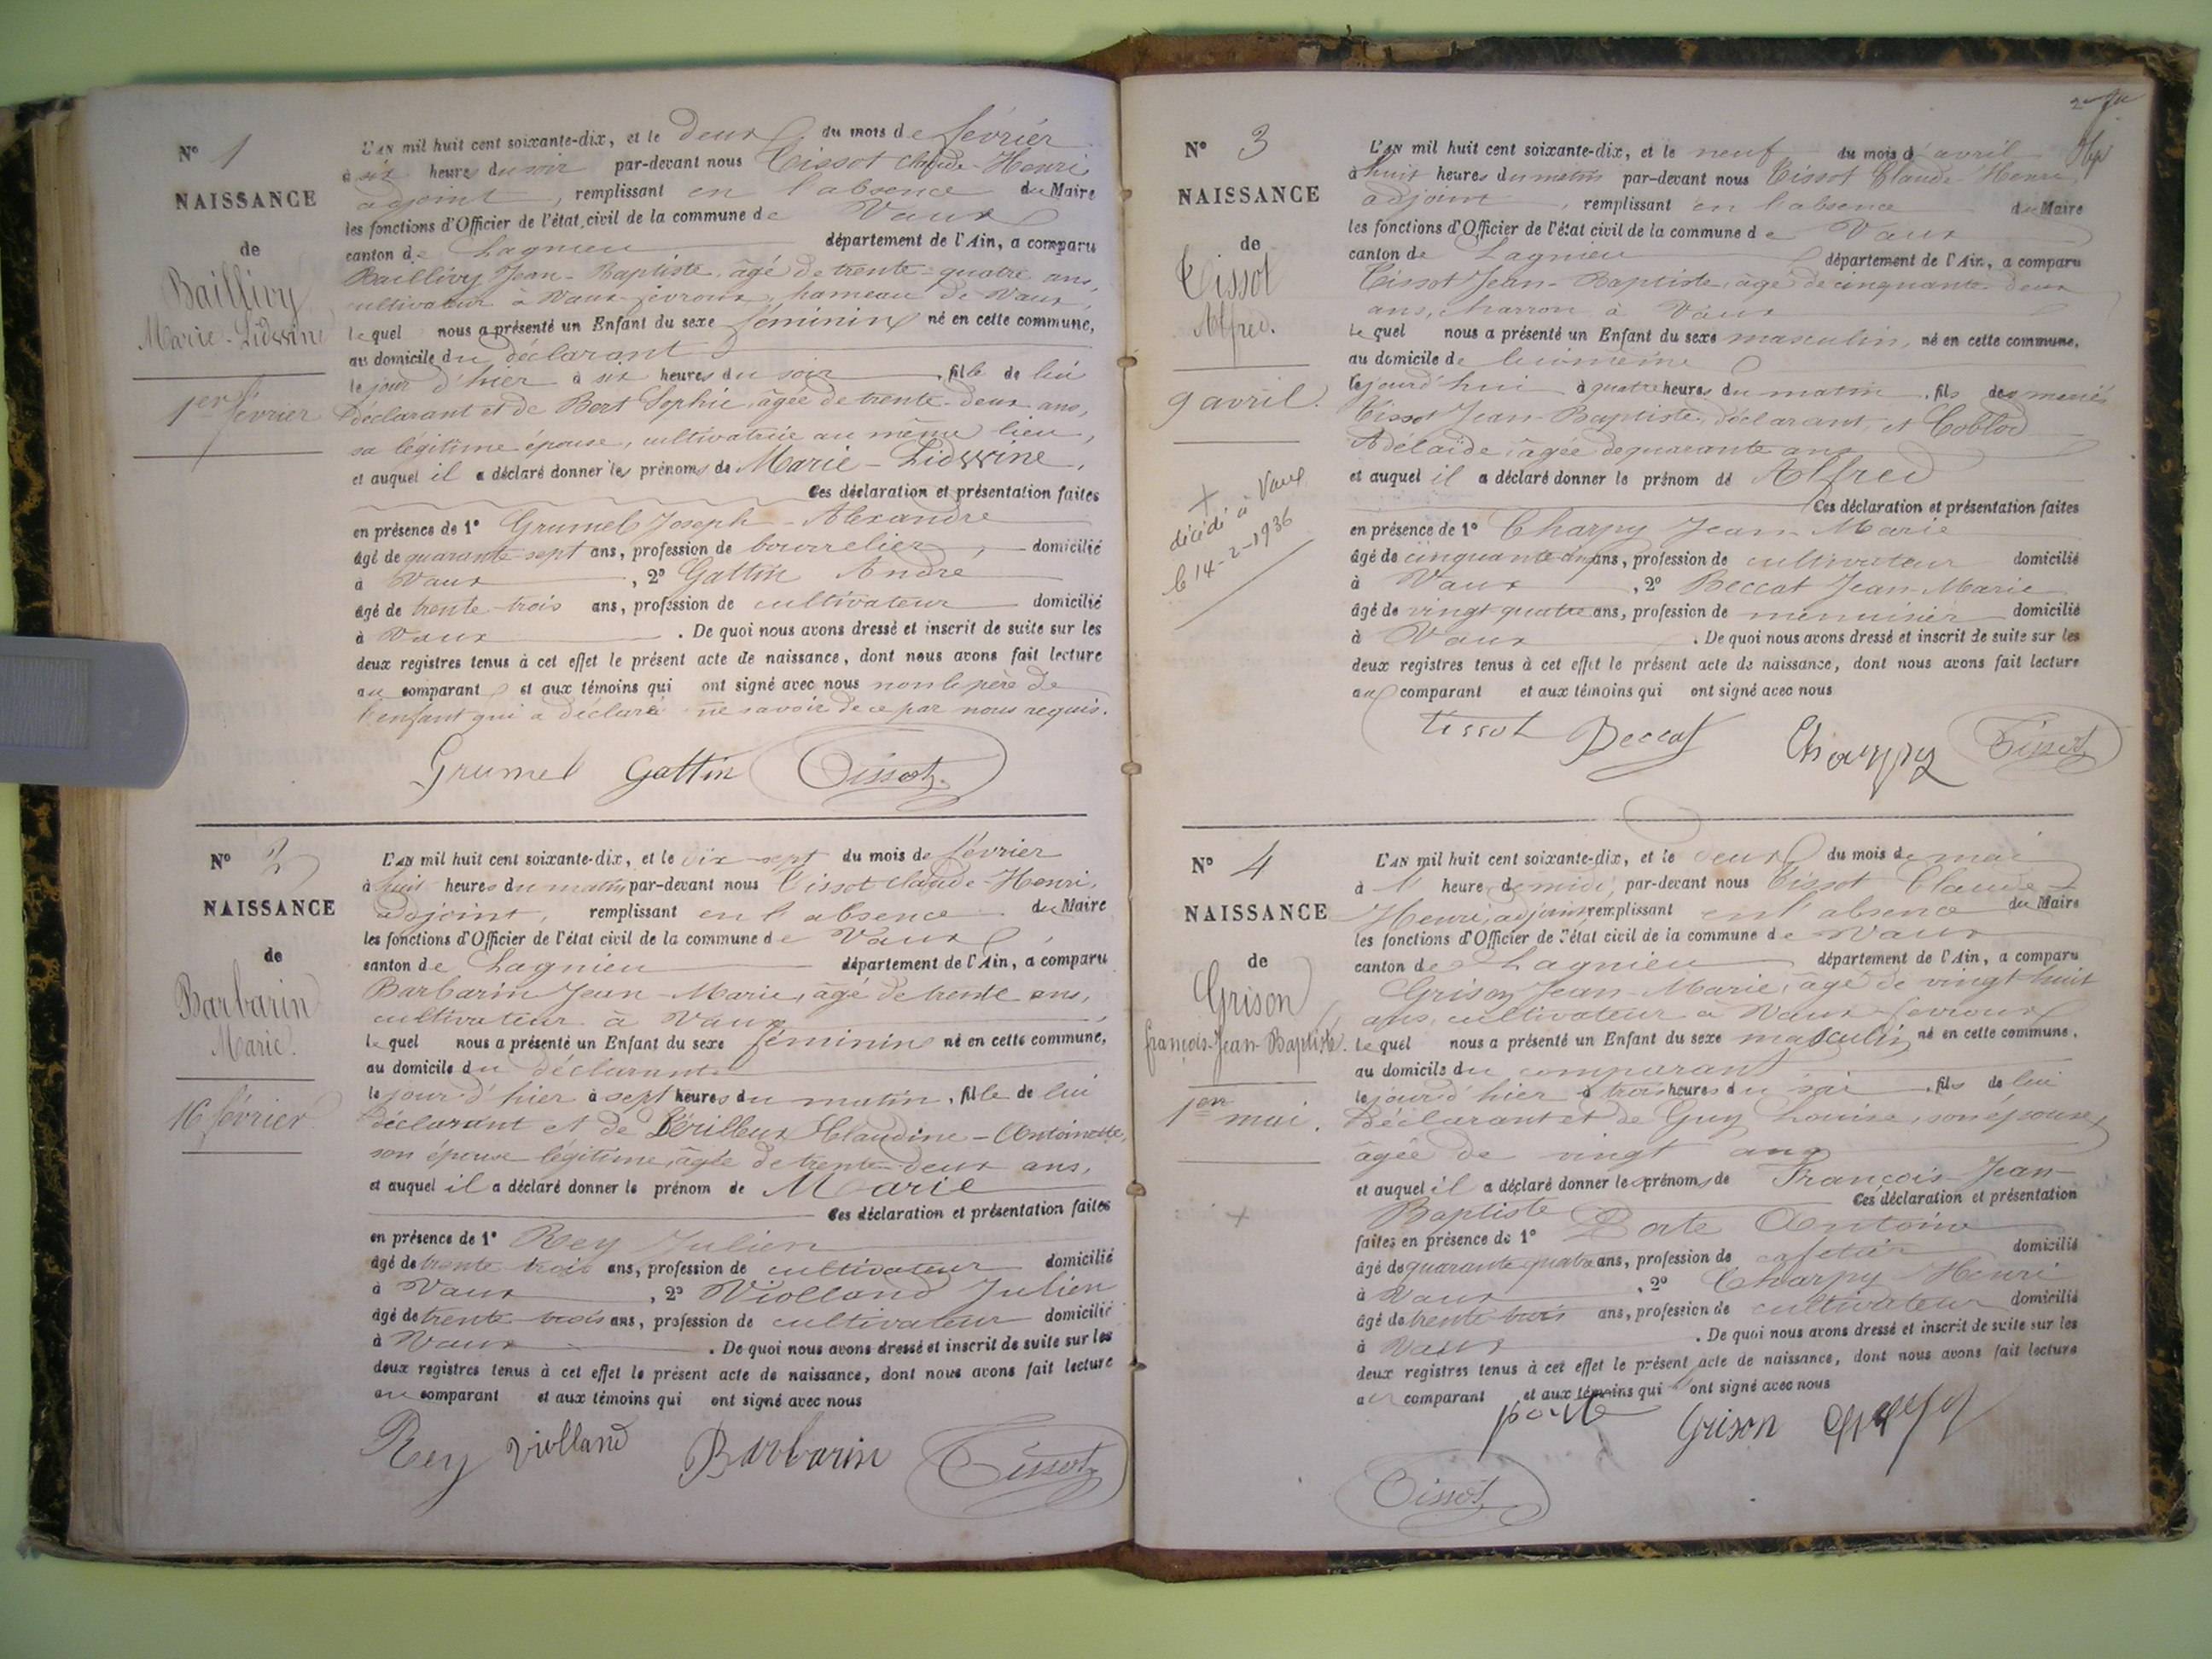 N° 1
NAISSANCE
de
Baillivy
Marie-Lidwine
1er février
L'AN mil huit cent soixante-dix, et le deux du mois de février
à six heures du soir par-devant nous Tissot Claude-Henri
adjoint, remplissant en l'absence du Maire
les fonctions d'Officier de l'état civil de la commune de Vaux
canton de Lagnieu département de l'Ain, a comparu
Baillivy Jean-Baptiste, âgé de trente-quatre ans,
cultivateur à Vaux-févroux, hameau de Vaux,
lequel nous a présenté un Enfant du sexe féminin né en cette commune,
au domicile du déclarant
le jour d'hier à six heures du soir, fille de lui
déclarant et de Bert Sophie, âgée de trente-deux ans,
sa légitime épouse, cultivatrice au même lieu,
et auquel il a déclaré donner les prénoms de Marie-Lidwine.
Ces déclaration et présentation faites
en présence de 1° Grumel Joseph-Alexandre
âgé de quarante-sept ans, profession de bourrelier, domicilié
à Vaux, 2° Gattin André
âgé de trente-trois ans, profession de cultivateur domicilié
à Vaux. De quoi nous avons dressé et inscrit de suite sur les
deux registres tenus à cet effet le présent acte de naissance, dont nous avons fait lecture
au comparant et aux témoins qui ont signé avec nous non le père de
l'enfant qui a déclaré ne savoir de ce par nous requis.
Grumel Gattin Tissot
N° 2
NAISSANCE
de
Barbarin
Marie.
16 février
L'AN mil huit cent soixante-dix, et le dix-sept du mois de février
à huit heures du matin par-devant nous Tissot Claude-Henri,
adjoint, remplissant en l'absence du Maire
les fonctions d'Officier de l'état civil de la commune de Vaux,
canton de Lagnieu département de l'Ain, a comparu
Barbarin Jean-Marie, âgé de trente ans,
cultivateur à Vaux,
lequel nous a présenté un Enfant du sexe féminin né en cette commune,
au domicile du déclarant
le jour d'hier à sept heures du matin, fille de lui
déclarant et de Claudine-Antoinette,
son épouse légitime, âgée de trente-deux ans,
et auquel il a déclaré donner le prénom de Marie
Ces déclaration et présentation faites
en présence de 1° Rey Julien
âgé de trente-trois ans, profession de cultivateur domicilié
à Vaux, 2° Violland Julien
âgé de trente-trois ans, profession de cultivateur domicilié
à Vaux. De quoi nous avons dressé et inscrit de suite sur les
deux registres tenus à cet effet le présent acte de naissance, dont nous avons fait lecture
au comparant et aux témoins qui ont signé avec nous
Rey Violland Barbarin Tissot
N° 3
NAISSANCE
de
Tissot
Alfred.
9 avril.
+
décédé à Vaux
le 14-2-1936
L'AN mil huit cent soixante-dix, et le neuf du mois d'avril
à huit heures du matin par-devant nous Tissot Claude-Henri
adjoint, remplissant en l'absence du Maire
les fonctions d'Officier de l'état civil de la commune de Vaux
canton de Lagnieu département de l'Ain, a comparu
Tissot Jean-Baptiste, âgé de cinquante-deux
ans, charron à Vaux
lequel nous a présenté un Enfant du sexe masculin, né en cette commune,
au domicile de lui même
le jourd'hui à quatre heures du matin, fils des mariés
Tissot Jean-Baptiste, déclarant, et Coblod
Adélaïde, âgée de quarante ans
et auquel il a déclaré donner le prénom de Alfred
Ces déclaration et présentation faites
en présence de 1° Charpy Jean-Marie
âgé de cinquante ans, profession de cultivateur domicilié
à Vaux, 2° Beccat Jean-Marie
âgé de vingt-quatre ans, profession de menuisier domicilié
à Vaux. De quoi nous avons dressé et inscrit de suite sur les
deux registres tenus à cet effet le présent acte de naissance, dont nous avons fait lecture
au comparant et aux témoins qui ont signé avec nous
tissot Beccat Charpy Tissot
N° 4
NAISSANCE
de
Grison
françois-Jean-Baptiste.
1er mai.
+
L'AN mil huit cent soixante-dix, et le deux du mois de mai
à 1 heure de midi, par-devant nous Tissot Claude-
Henri, adjoint remplissant en l'absence du Maire
les fonctions d'Officier de l'état civil de la commune de Vaux
canton de Lagnieu département de l'Ain, a comparu
Grison Jean-Marie, âgé de vingt-huit
ans, cultivateur à Vaux-fevroux
lequel nous a présenté un Enfant du sexe masculin né en cette commune,
au domicile du comparant
le jour d'hier à trois heures du soir, fils de lui
Déclarant et de Guy Louise, son épouse,
âgée de vingt ans
et auquel il a déclaré donner les prénoms de François-Jean-
Baptiste Ces déclaration et présentation
faites en présence de 1° Porte Antoine
âgé de quarante-quatre ans, profession de cafetier domicilié
à Vaux, 2° Charpy Henri
âgé de trente-trois ans, profession de cultivateur domicilié
à Vaux. De quoi nous avons dressé et inscrit de suite sur les
deux registres tenus à cet effet le présent acte de naissance, dont nous avons fait lecture
au comparant et aux témoins qui ont signé avec nous
porte Grison Charpy
Tissot